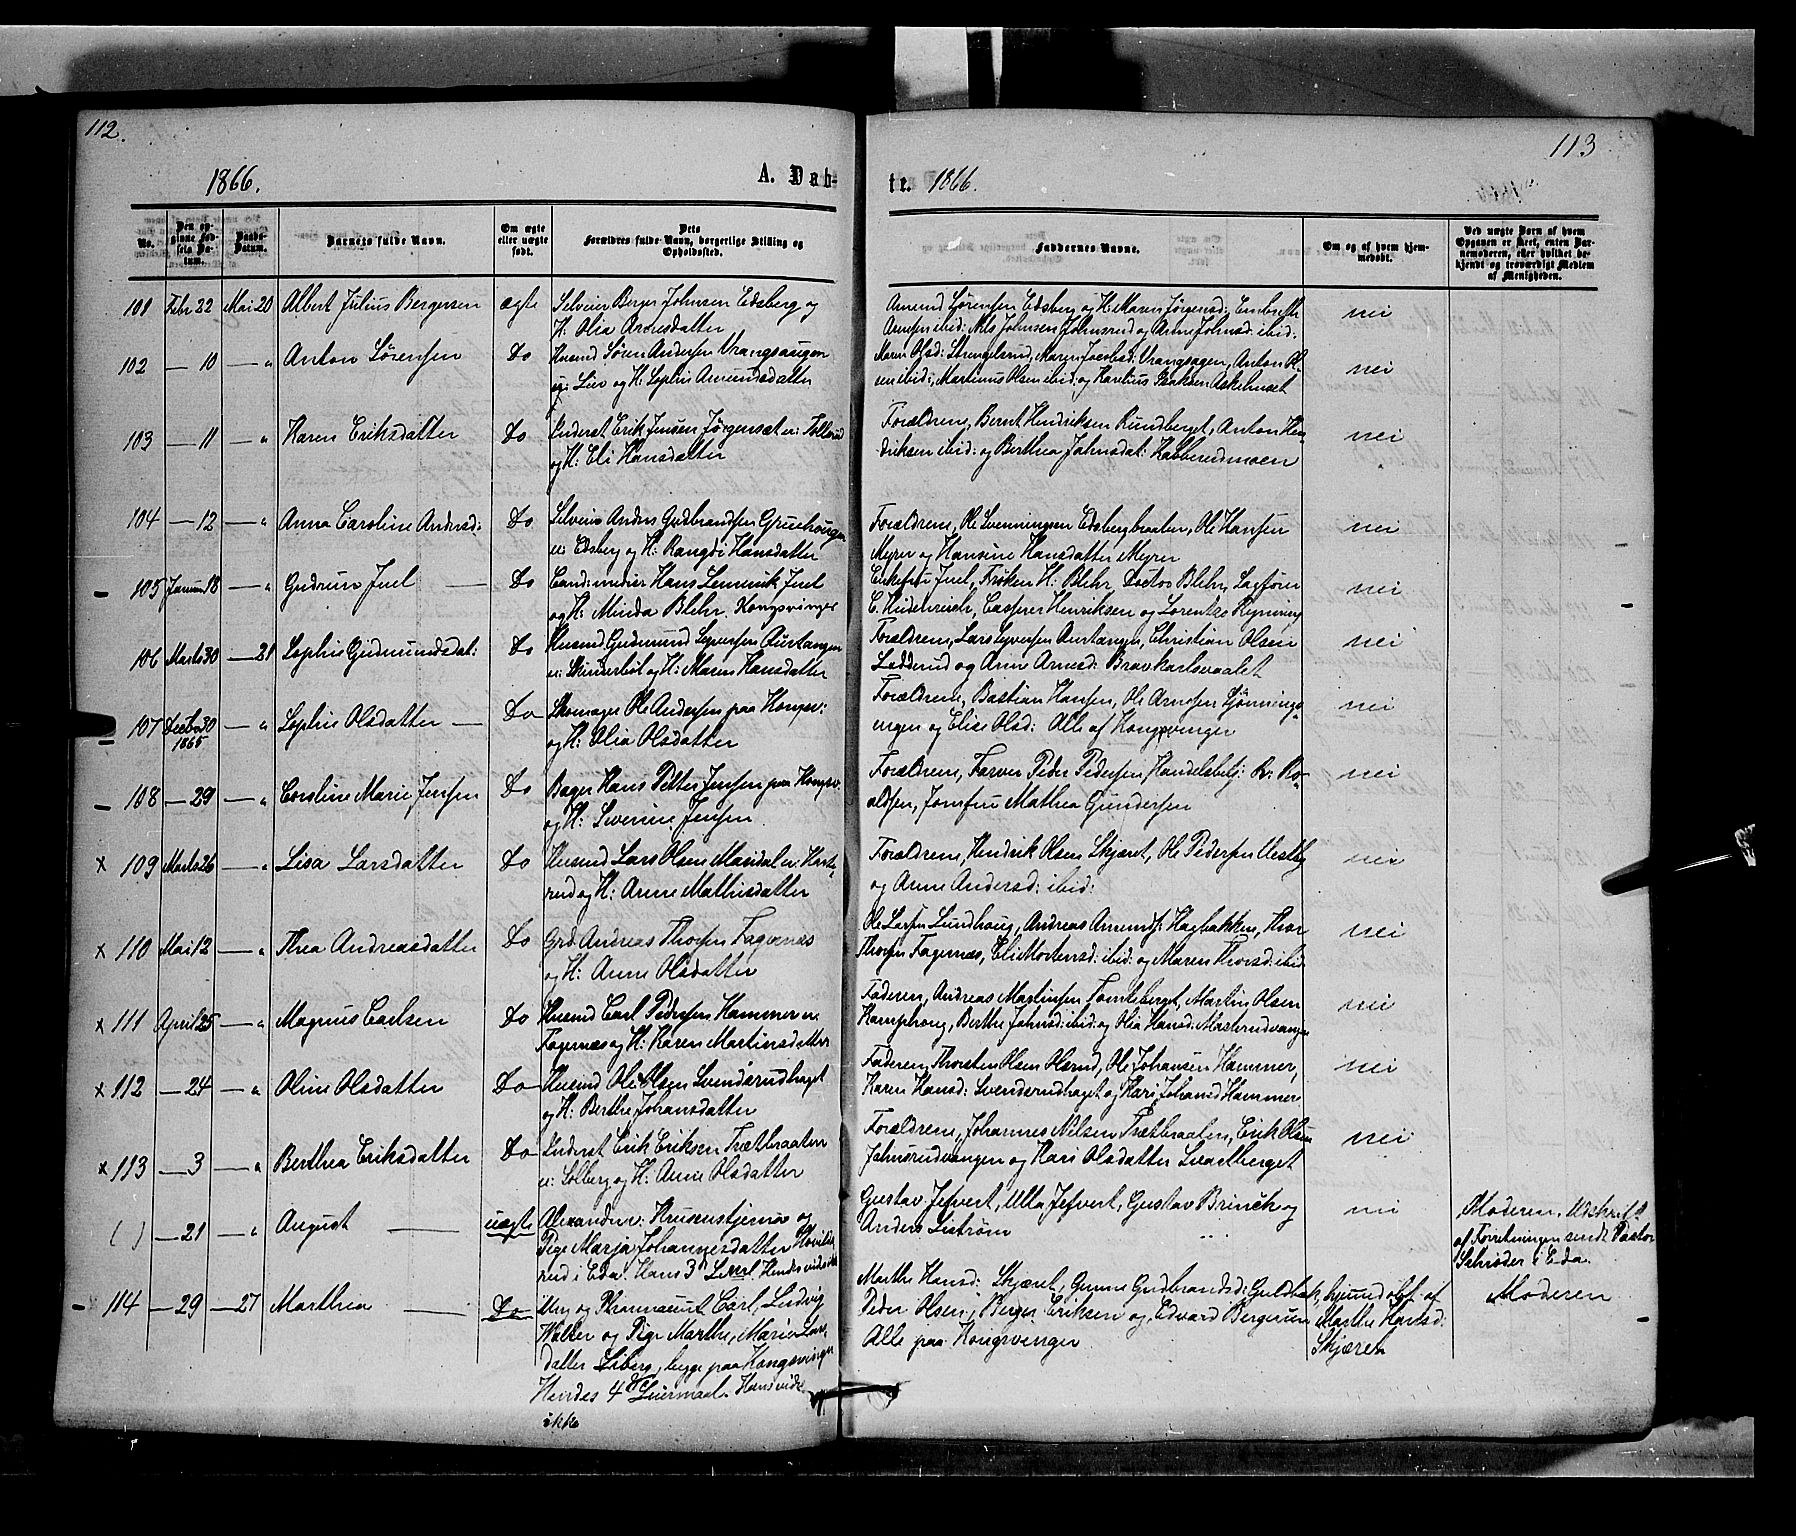 112.
1866.
A. Dab-
No.
Den op-
givne Fød-
sels Da-
tum.
Daabs-
Datum.
Barnets fulde Navn.
Om ægte
eller uægte
født.
Dets
Forældres fulde Navn, borgerlige Stilling og
Opholdssted.
101 Febr 22 Mai 20 Albert Julius Bergersen ægte Selveier Berger Johnsen Edsberg og
H. Olia Arnesdatter
102 — 10 — " Anton Sörensen Do Husmd Sören Andersen Vrangsaugen
u: Lier og H: Sophie Amundsdatter
103 — 11 — " Karen Eriksdatter Do Inderst Erik Jensen Jörgensæt u:
og H: Eli Hansdatter
104 — 12 — " Anna Caroline Andersd: Do Selveier Anders Gudbrandsen Gruehougen
u: Edsberg og H: Rangdi Hansdatter
105 Januar 18 — " Gudrun Juel — Do Cand: medici Hans Lemmik Juel
og H: Minda Blehr. Kongsvinger
106 Marts 30 — 21 Sophie Gudmundsdat: Do Husmd Gudmund Syversen Austangen
u: Skinderbøl og H: Maren Hansdatter
107 Decbr 30
1865 — " Sophie Olsdatter — Do Skomager Ole Andersen paa Kongsv:
og H: Olia Olsdatter
108 — 29 — " Caroline Marie Jensen Do Bager Hans Petter Jensen paa Kongsv.
og H: Severine Jensen.
x 109 Marts 26 — " Lisa Larsdatter Do Husmd Lars Olsen Masidal u: Kaste-
rud og H: Anne Mathisdatter
x 110 Mai 12 — " Thea Andreasdatter Do Grd Andreas Thorsen Fagernæs
og H: Anne Olsdatter
x 111 April 25 — " Magnus Carlsen Do Husmd Carl Pedersen Hammer u:
Fagernæs og H: Karen Martinsdatter
x 112 — 24 — " Oline Olsdatter Do Husmd Ole Olsen Svenserudhaget
og H: Berthe Johansdatter
x 113 — 3 — " Berthea Eriksdatter Do Inderst Erik Eriksen Trætbraaten
u: Solberg og H: Anne Olsdatter
( ) — 21 — " August — uægte Alexander: Krusenstjerna og
Pige Marja Johannesdatter
rud i Eda. Hans 3die
114 — 29 — 27 Marthea — Do Ung og Pharmaceut Carl Ludvig
Walter og Pige Marthe Marie Lars-
datter Liberg, begge paa Kongsvinger
Hendes 4de Leiermaal. Hans vides
ikke
113
te. 1866.
Faddernes Navne.
Om og af hvem hjem-
medøbt.
Ved uægte Børn af hvem
Opgaven er skeet, enten Bar-
nemoderen, eller hvilket be-
kjendt og troværdigt Medlem
af Menigheden.
Amund Sörensen Edsberg og H: Maren Jörgensd: Engebreth
Arnesen ibid: Nils Johnsen Johnsrud og Anne Johnsd: ibid: nei
Maren Olsd: Strengelsrud, Maren Jacobsd: Vrangsagen, Anton Ol-
sen ibid:, Martinus Olsen ibid: og Karelius Isaksen Askehuset nei
Forældrene, Bernt Hendriksen Rundberget, Anton Hen-
driksen ibid: og Berthea Johnsdat: Kabberudmoen nei
Forældrene, Ole Svenningsen Edsbergbraaten, Ole Hansen
Myrer og Hansine Hansdatter Myrer nei
Enkefru Juel, Frøken H: Blehr, Doctor Blehr, Sagfører
C. Heidenreich, Casper Henriksen og Lorentze Rynning nei
Forældrene, Lars Syversen Austangen, Christian Olsen
Ladderud og Anne Arnesd: Bravkarlsvaalet nei
Forældrene, Bastian Hansen, Ole Arnesen
og Elise Olsd: Alle af Kongsvinger nei
Forældrene, Farver Peder Pedersen, Handelsbetj: R. Ro-
aldsen, Jomfru Mathea Gundersen nei
Forældrene, Hendrik Olsen Skjæret, Ole Pedersen Vestby
og Anne Andersd: ibid: nei
Ole Larsen Lundhoug, Andreas Amunds: Hagbakken, Thor
Thorsen Fagernæs, Eli Mortensd: ibid: og Maren Thorsd: ibid nei
Faderen, Andreas Martinsen Tomteberget, Martin Olsen
Kamphoug, Berthe Johnsd: ibid: og Olia Hansd: Masterudvangen nei
Faderen, Thorsten Olsen Olsrud, Ole Johansen Hammer,
Karen Hansd: Svenserudhaget og Kari Johansd Hammer nei
Forældrene, Johannes Nilsen Trætbraaten, Erik Olsen
Johnsrudvangen og Kari Olsdatter Svartberget nei
Gustav Jefvert, Ulla Jefvert, Gustav Brinck og
Anders Liström nei Moderen. Udskrift
af Forretningen sendt Pastor
Schröder i Eda.
Marthe Hansd: Skjæret, Gunne Gudbrandsd: Guldbak,
Peder Olsen, Berger Eriksen og Edvard Bergersen
Alle paa Kongsvinger
hjemdøbt af
Marthe Hansd:
Skjæret Moderen